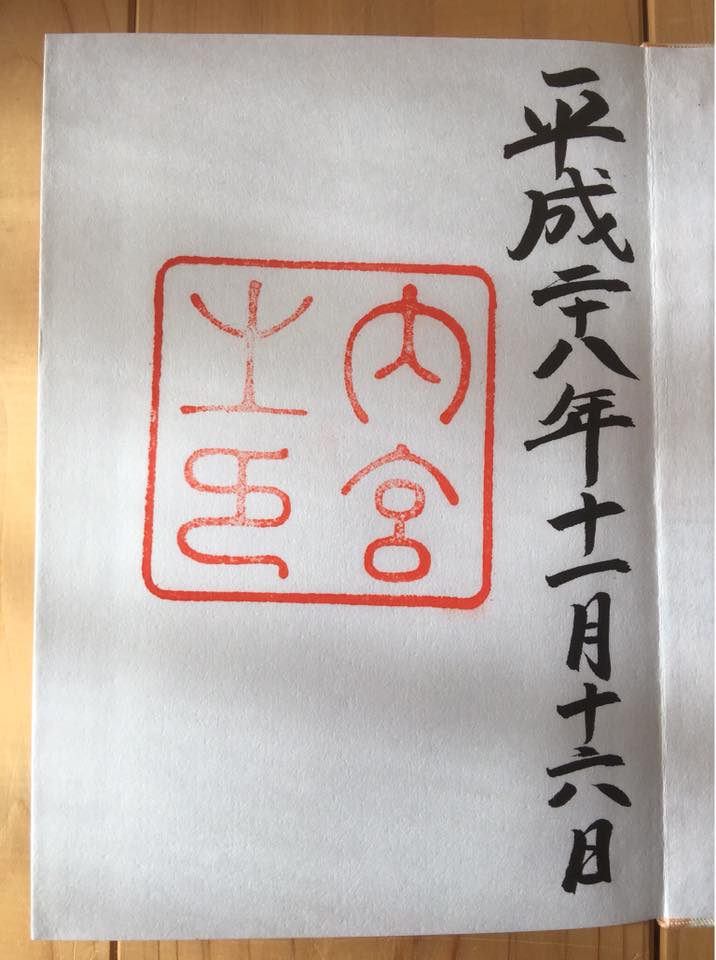 平成二十八年十一月十六日
内宮
之印